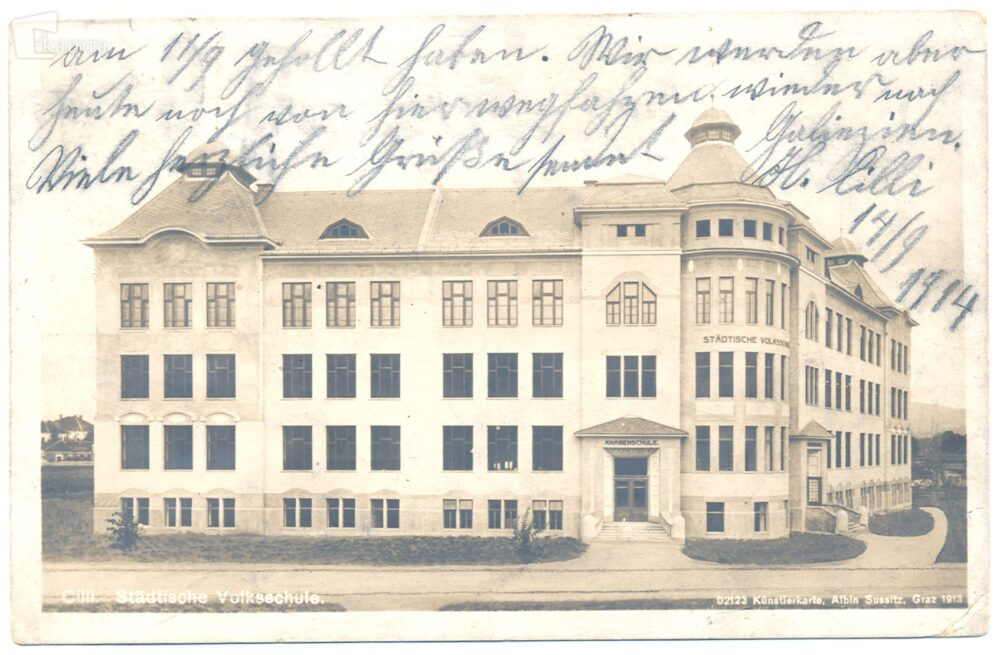 am 11/9 gehollt haben. Wir werden aber
heute noch von hier wegfahren wieder nach
Galinzien.
Viele herzliche Grüße sennt
H. Cilli
14/9
1914
STÄDTISCHE VOLKSSCHU
KNABENSCHULE.
Cilli. Städtische Volksschule.
02123 Künstlerkarte, Albin Sussitz, Graz 1913